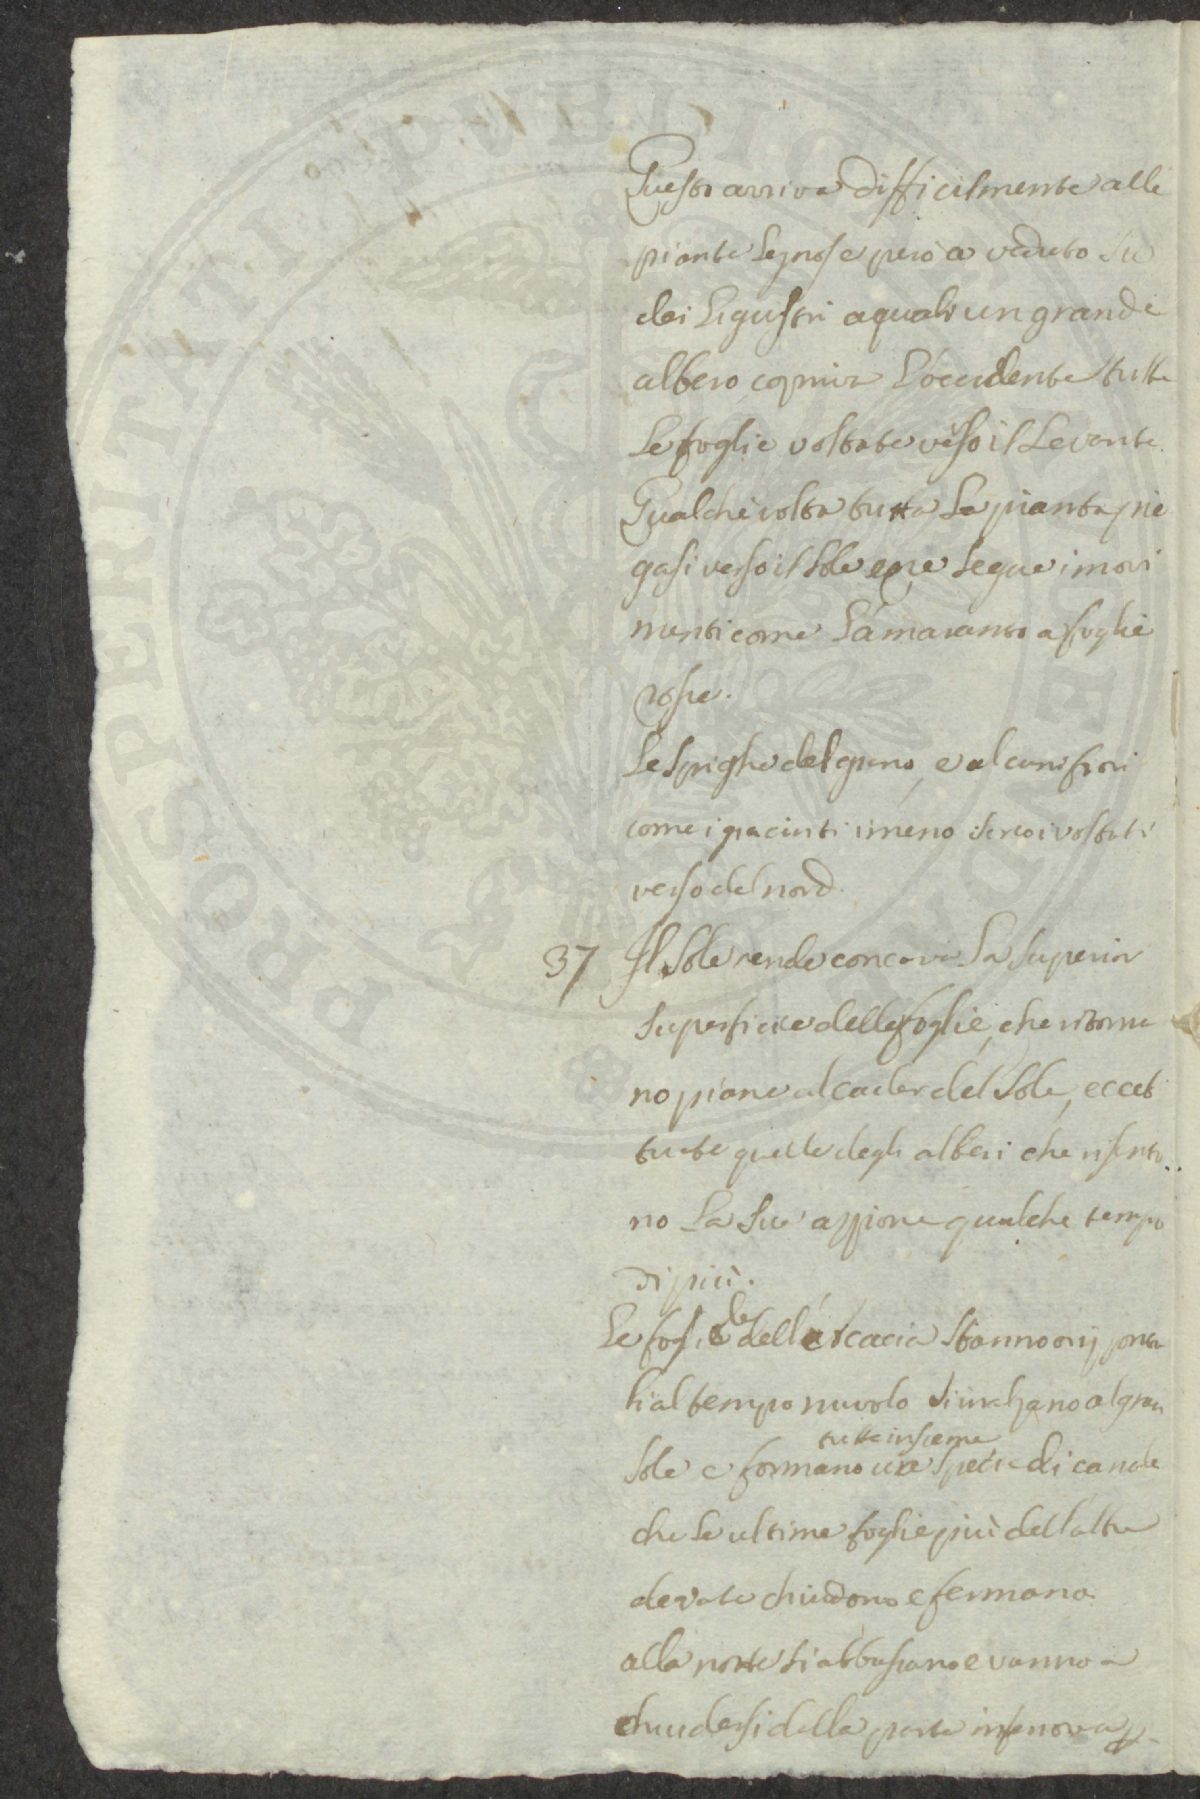 Questo arriva difficilmente alle
piante legnose però a veduto Lu
dei Ligustri a quali un grande
albero copriva L'occidente tutte
Le foglie voltate verso il Levante.
Qualche volta tutta La pianta pie
gasi verso il Sole e ne Segue i movi
menti come L'amaranto a foglie
rosse.
Le Spighe del grano, e alcuni fiori
come i giacinti voltati
verso del nord.
37 Il Sole rende concava La Superior
Superficie delle foglie, che ritorna
no piane al cader del Sole, eccet
tuate quelle degli alberi che risento
no La Sua azzione qualche tempo
di più.
Le foglie della Acacia Stanno orizonta
li al tempo nuvolo S'inalzano al gran
tutte insieme
Sole e formano una Specie di canale
che Le ultime foglie più dell'altre
elevate chiudono e fermano.
alla notte Si abbassano e vanno a
chiudersi dalla parte inferiore
PROSPERITATI PUBLICAE AUGENDAE